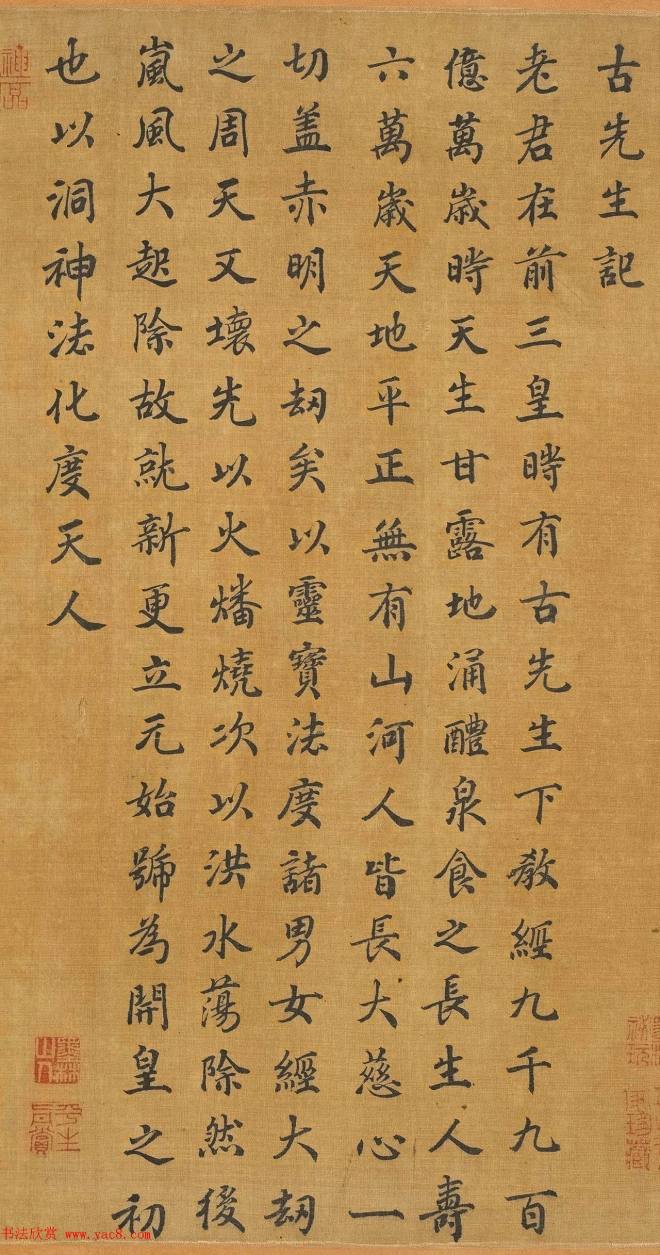 古先生記
老君在前三皇時有古先生下教經九千九百
億萬歲時天生甘露地涌醴泉食之長生人壽
六萬歲天地平正無有山河人皆長大慈心一
切盖赤明之劫矣以靈寶法度諸男女經大劫
之周天又壞先以火燔燒次以洪水蕩除然後
嵐風大起除故就新更立元始號為開皇之初
也以洞神法化度天人
神品
书法欣赏 www.yac8.com